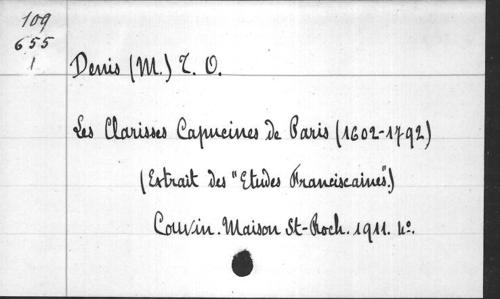 109
655
1
Denis (M.) T. O.
Les Clarisses Capucines de Paris (1602-1792)
(Extrait des "Etudes Franciscaines".)
Couvin. Maison St-Roch. 1911. 4º.